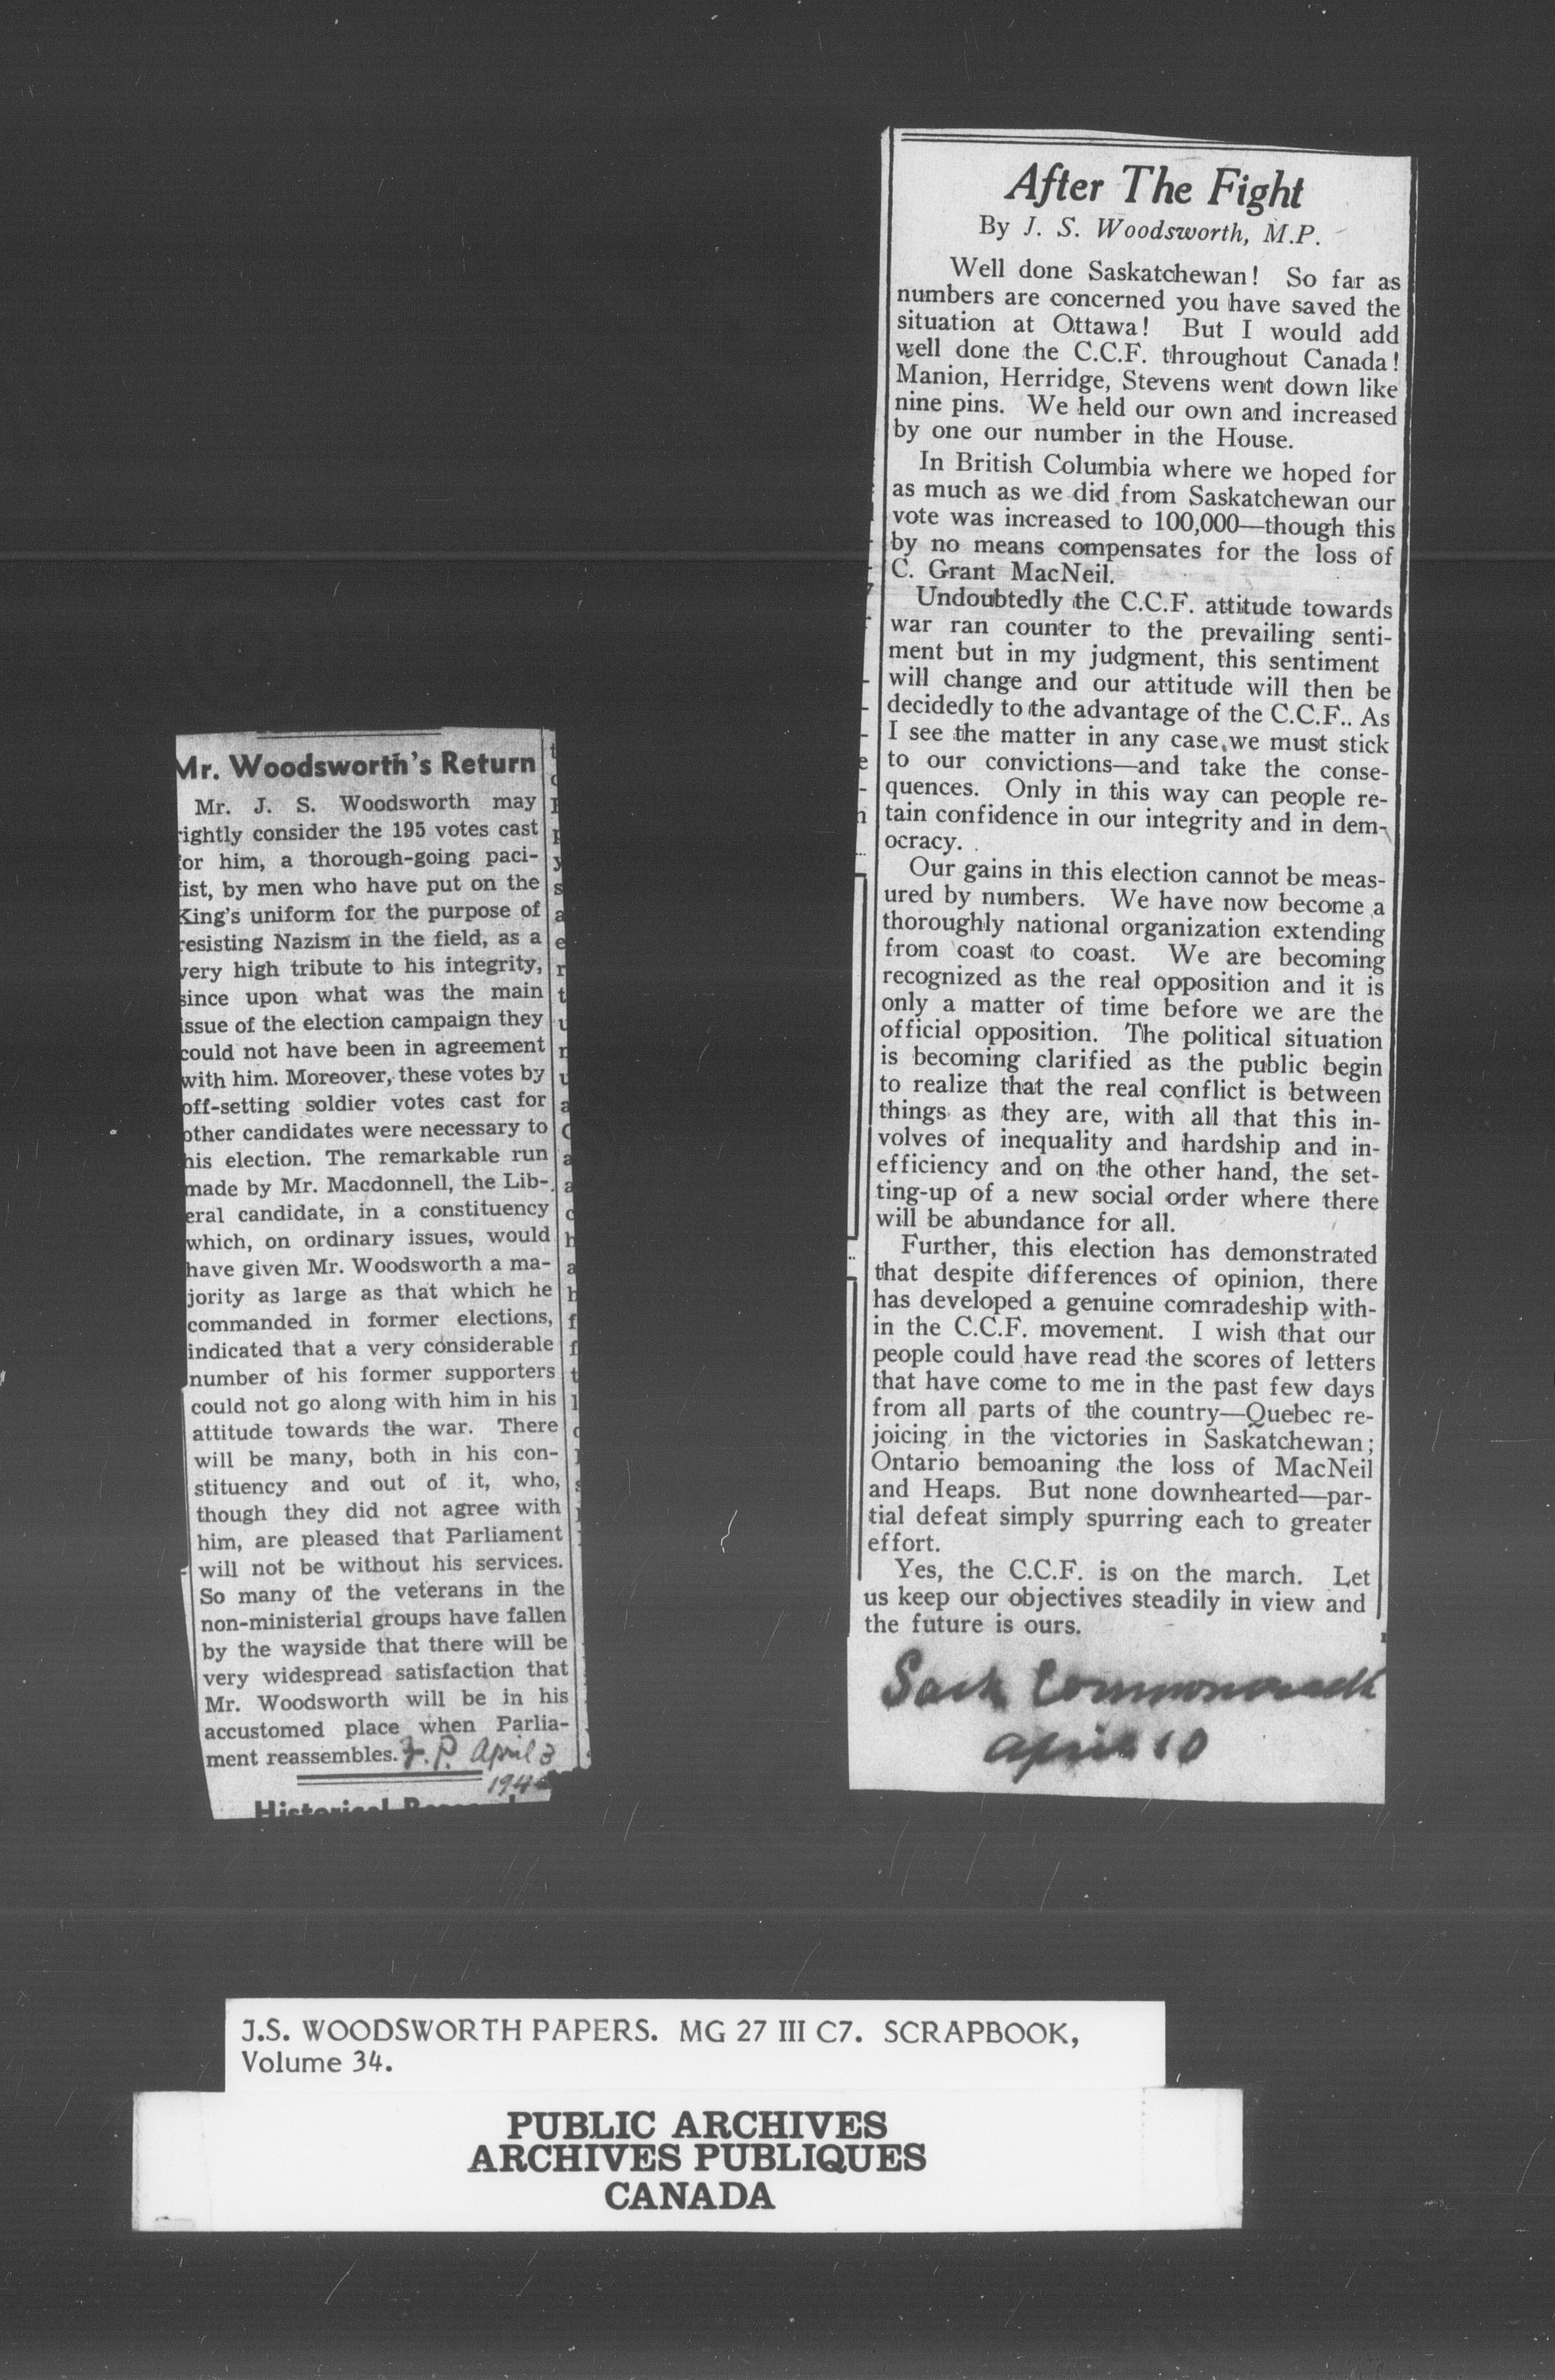 Mr. Woodsworth's Return
Mr. J. S. Woodsworth may
rightly consider the 195 votes cast
for him, a thorough-going paci-
fist, by men who have put on the
King's uniform for the purpose of
resisting Nazism in the field, as a
very high tribute to his integrity,
since upon what was the main
issue of the election campaign they
could not have been in agreement
with him. Moreover, these votes by
off-setting soldier votes cast for
other candidates were necessary to
his election. The remarkable run
made by Mr. Macdonnell, the Lib-
eral candidate, in a constituency
which, on ordinary issues, would
have given Mr. Woodsworth a ma-
jority as large as that which he
commanded in former elections,
indicated that a very considerable
number of his former supporters
could not go along with him in his
attitude towards the war. There
will be many, both in his con-
stituency and out of it, who,
though they did not agree with
him, are pleased that Parliament
will not be without his services.
So many of the veterans in the
non-ministerial groups have fallen
by the wayside that there will be
very widespread satisfaction that
Mr. Woodsworth will be in his
accustomed place when Parlia-
ment reassembles. F.P. April 3
Historical
After The Fight
By J. S. Woodsworth, M.P.
Well done Saskatchewan! So far as
numbers are concerned you have saved the
situation at Ottawa! But I would add
well done the C.C.F. throughout Canada!
Manion, Herridge, Stevens went down like
nine pins. We held our own and increased
by one our number in the House.
In British Columbia where we hoped for
as much as we did from Saskatchewan our
vote was increased to 100,000—though this
by no means compensates for the loss of
C. Grant MacNeil.
Undoubtedly the C.C.F. attitude towards
war ran counter to the prevailing senti-
ment but in my judgment, this sentiment
will change and our attitude will then be
decidedly to the advantage of the C.C.F.. As
I see the matter in any case we must stick
to our convictions—and take the conse-
quences. Only in this way can people re-
tain confidence in our integrity and in dem-
ocracy.
Our gains in this election cannot be meas-
ured by numbers. We have now become a
thoroughly national organization extending
from coast to coast. We are becoming
recognized as the real opposition and it is
only a matter of time before we are the
official opposition. The political situation
is becoming clarified as the public begin
to realize that the real conflict is between
things as they are, with all that this in-
volves of inequality and hardship and in-
efficiency and on the other hand, the set-
ting-up of a new social order where there
will be abundance for all.
Further, this election has demonstrated
that despite differences of opinion, there
has developed a genuine comradeship with-
in the C.C.F. movement. I wish that our
people could have read the scores of letters
that have come to me in the past few days
from all parts of the country—Quebec re-
joicing in the victories in Saskatchewan;
Ontario bemoaning the loss of MacNeil
and Heaps. But none downhearted—par-
tial defeat simply spurring each to greater
effort.
Yes, the C.C.F. is on the march. Let
us keep our objectives steadily in view and
the future is ours.
Sask Commonwealth
April 10
J.S. WOODSWORTH PAPERS. MG 27 III C7. SCRAPBOOK,
Volume 34.
PUBLIC ARCHIVES
ARCHIVES PUBLIQUES
CANADA